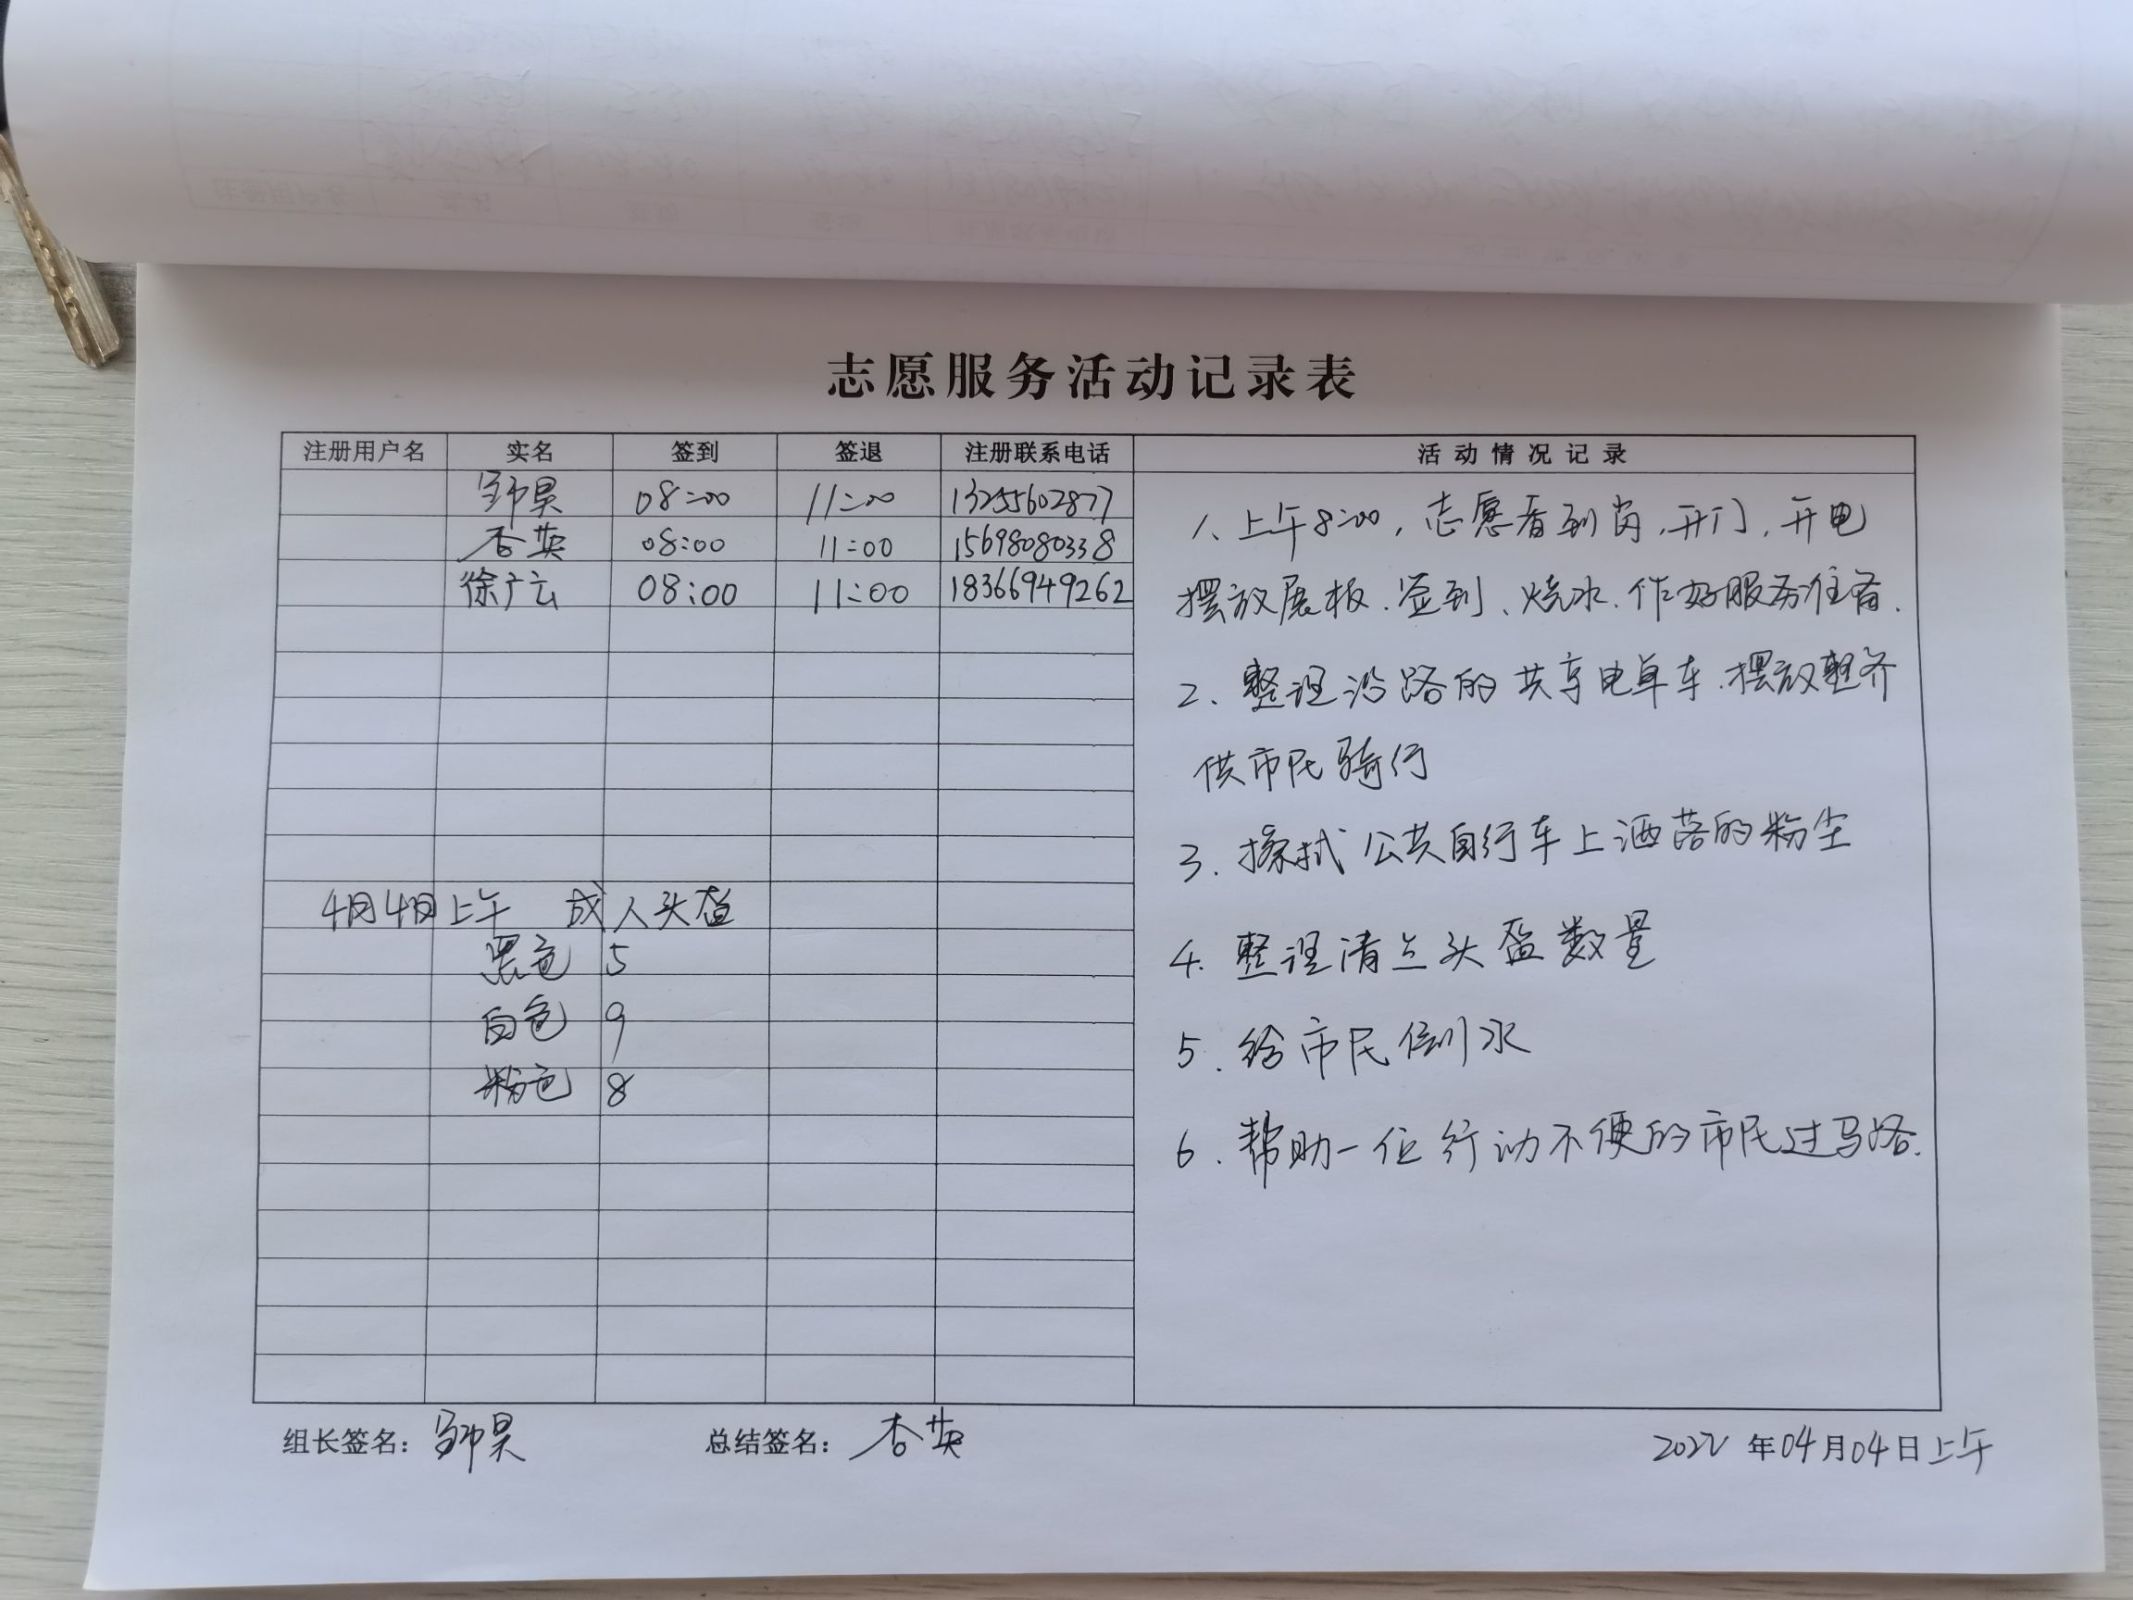 志愿服务活动记录表
注册用户名 实名 签到 签退 注册联系电话 活动情况记录
08:00 11:00 13255602877
杏英 08:00 11:00 15698080338
徐广云 08:00 11:00 18366949262
1、上午8:00，志愿者到岗，开门，开电
摆放展板、签到、烧水、作好服务准备.
2、整理沿路的共享电单车.摆放整齐
供市民骑行
3.擦拭公共自行车上洒落的粉尘
4.整理清点头盔数量
5.给市民倒水
6.帮助一位行动不便的市民过马路.
4月4日上午 成人头盔
黑色 5
白色 9
粉色 8
组长签名： 总结签名：杏英 2022年04月04日上午